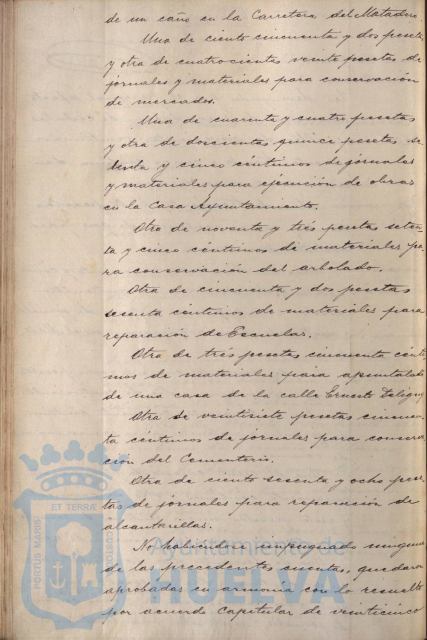 de un caño en la Carretera del Matadero.
Una de ciento cincuenta y dos pesetas
y otra de cuatrocientas veinte pesetas de
jornales y materiales para conservación
de mercados.
Una de cuarenta y cuatro pesetas
y otra de doscientas quince pesetas se-
tenta y cinco céntimos de jornales
y materiales para ejecución de obras
en la Casa Ayuntamiento.
Otra de noventa y tres pesetas seten-
ta y cinco céntimos de materiales pa-
ra conservación del arbolado.
Otra de cincuenta y dos pesetas
sesenta céntimos de materiales para
reparación de Escuelas.
Otra de tres pesetas cincuenta cénti-
mos de materiales para apuntalado
de una casa de la calle Ernesto Deligny
Otra de veintisiete pesetas cincuen-
ta céntimos de jornales para conserva-
ción del Cementerio.
Otra de ciento sesenta y ocho pese-
tas de jornales para reparación de
alcantarillas.
No habiéndose impugnado ninguna
de las precedentes cuentas, quedaron
aprobadas en armonía con lo resuelto
por acuerdo capitular de veinticinco
PORTUS MARIS
ET TERRÆ
CUSTODIA
Ayuntamiento de
HUELVA